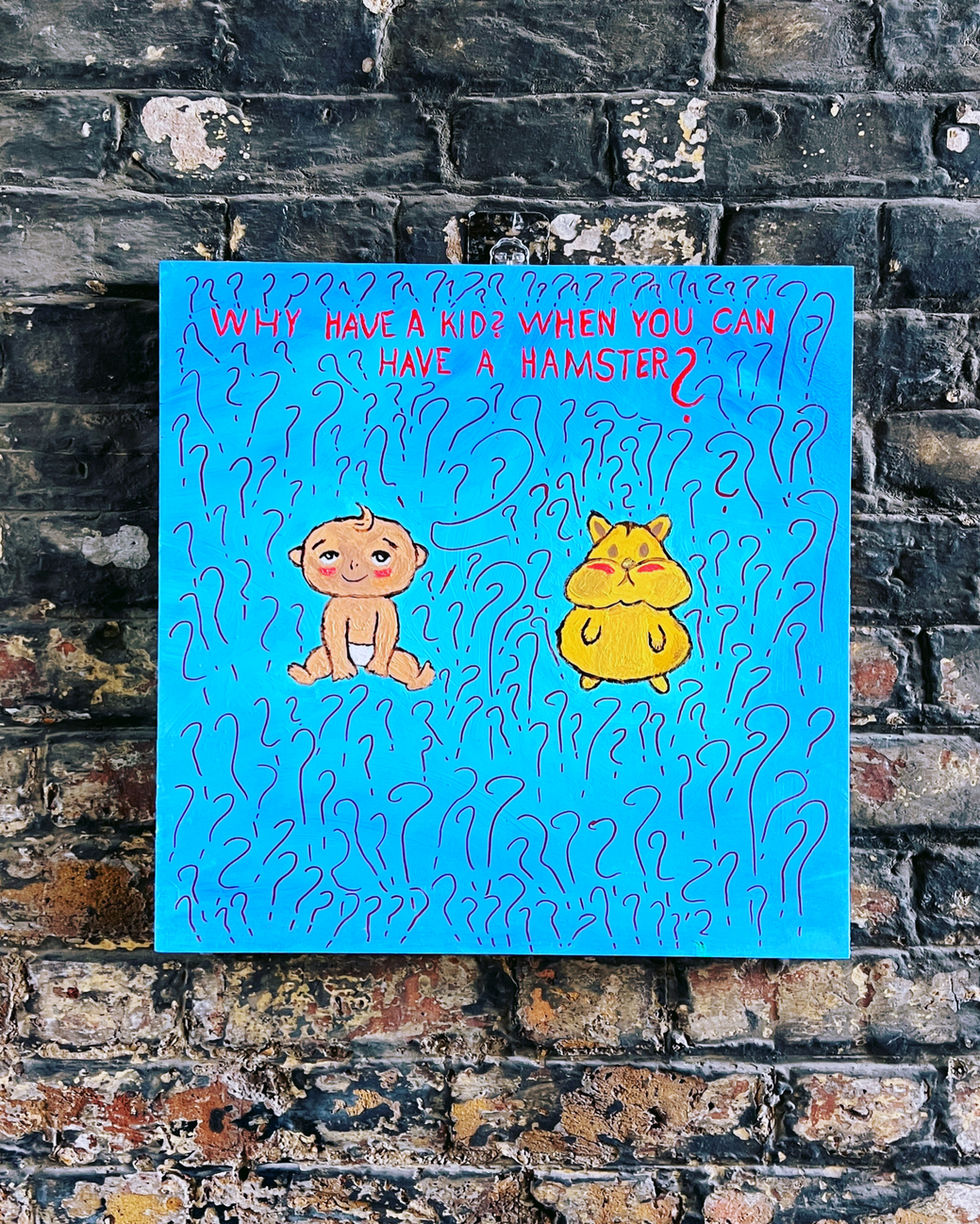 WHY HAVE A KID? WHEN YOU CAN
HAVE A HAMSTER?